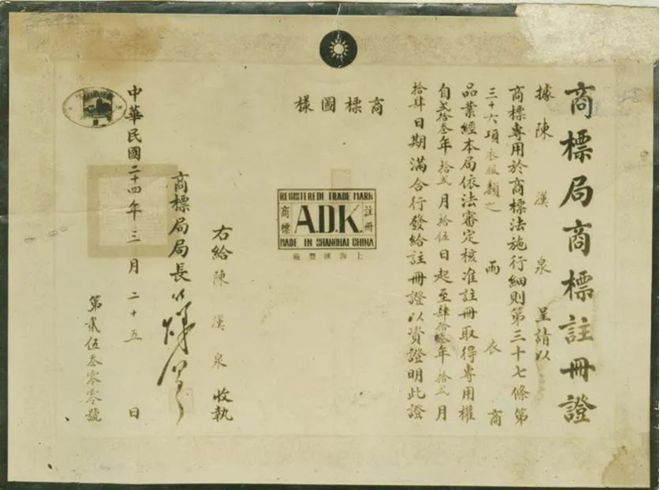 商標局商標註冊證
據陳漢泉呈請以
商標專用於商標法施行細則第三十七條第
三十六項衣服類之雨衣商
品業經本局依法審定核准註冊取得專用權
自貳拾叁年拾貳月拾伍日起至肆拾叁年拾貳月
拾肆日期滿合行發給註冊證以資證明此證
商標圖樣
REGISTEREDE TRADE MARK
商標
A.D.K.
註冊
MADE IN SHANGHAI CHINA
上海匯豐廠
右給陳漢泉收執
商標局局長
中華民國二十四年三月二十五日
第貳伍叁零零號